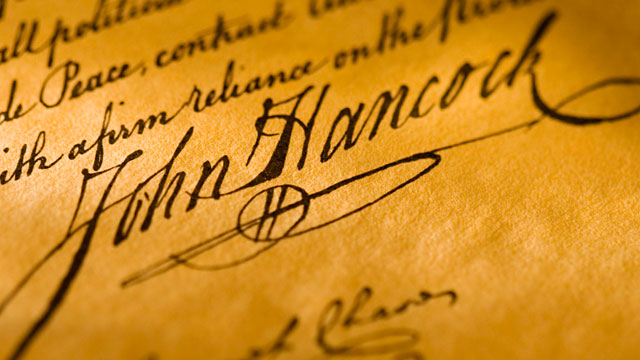 all political
de Peace, contract
ith a firm reliance on the
John Hancock